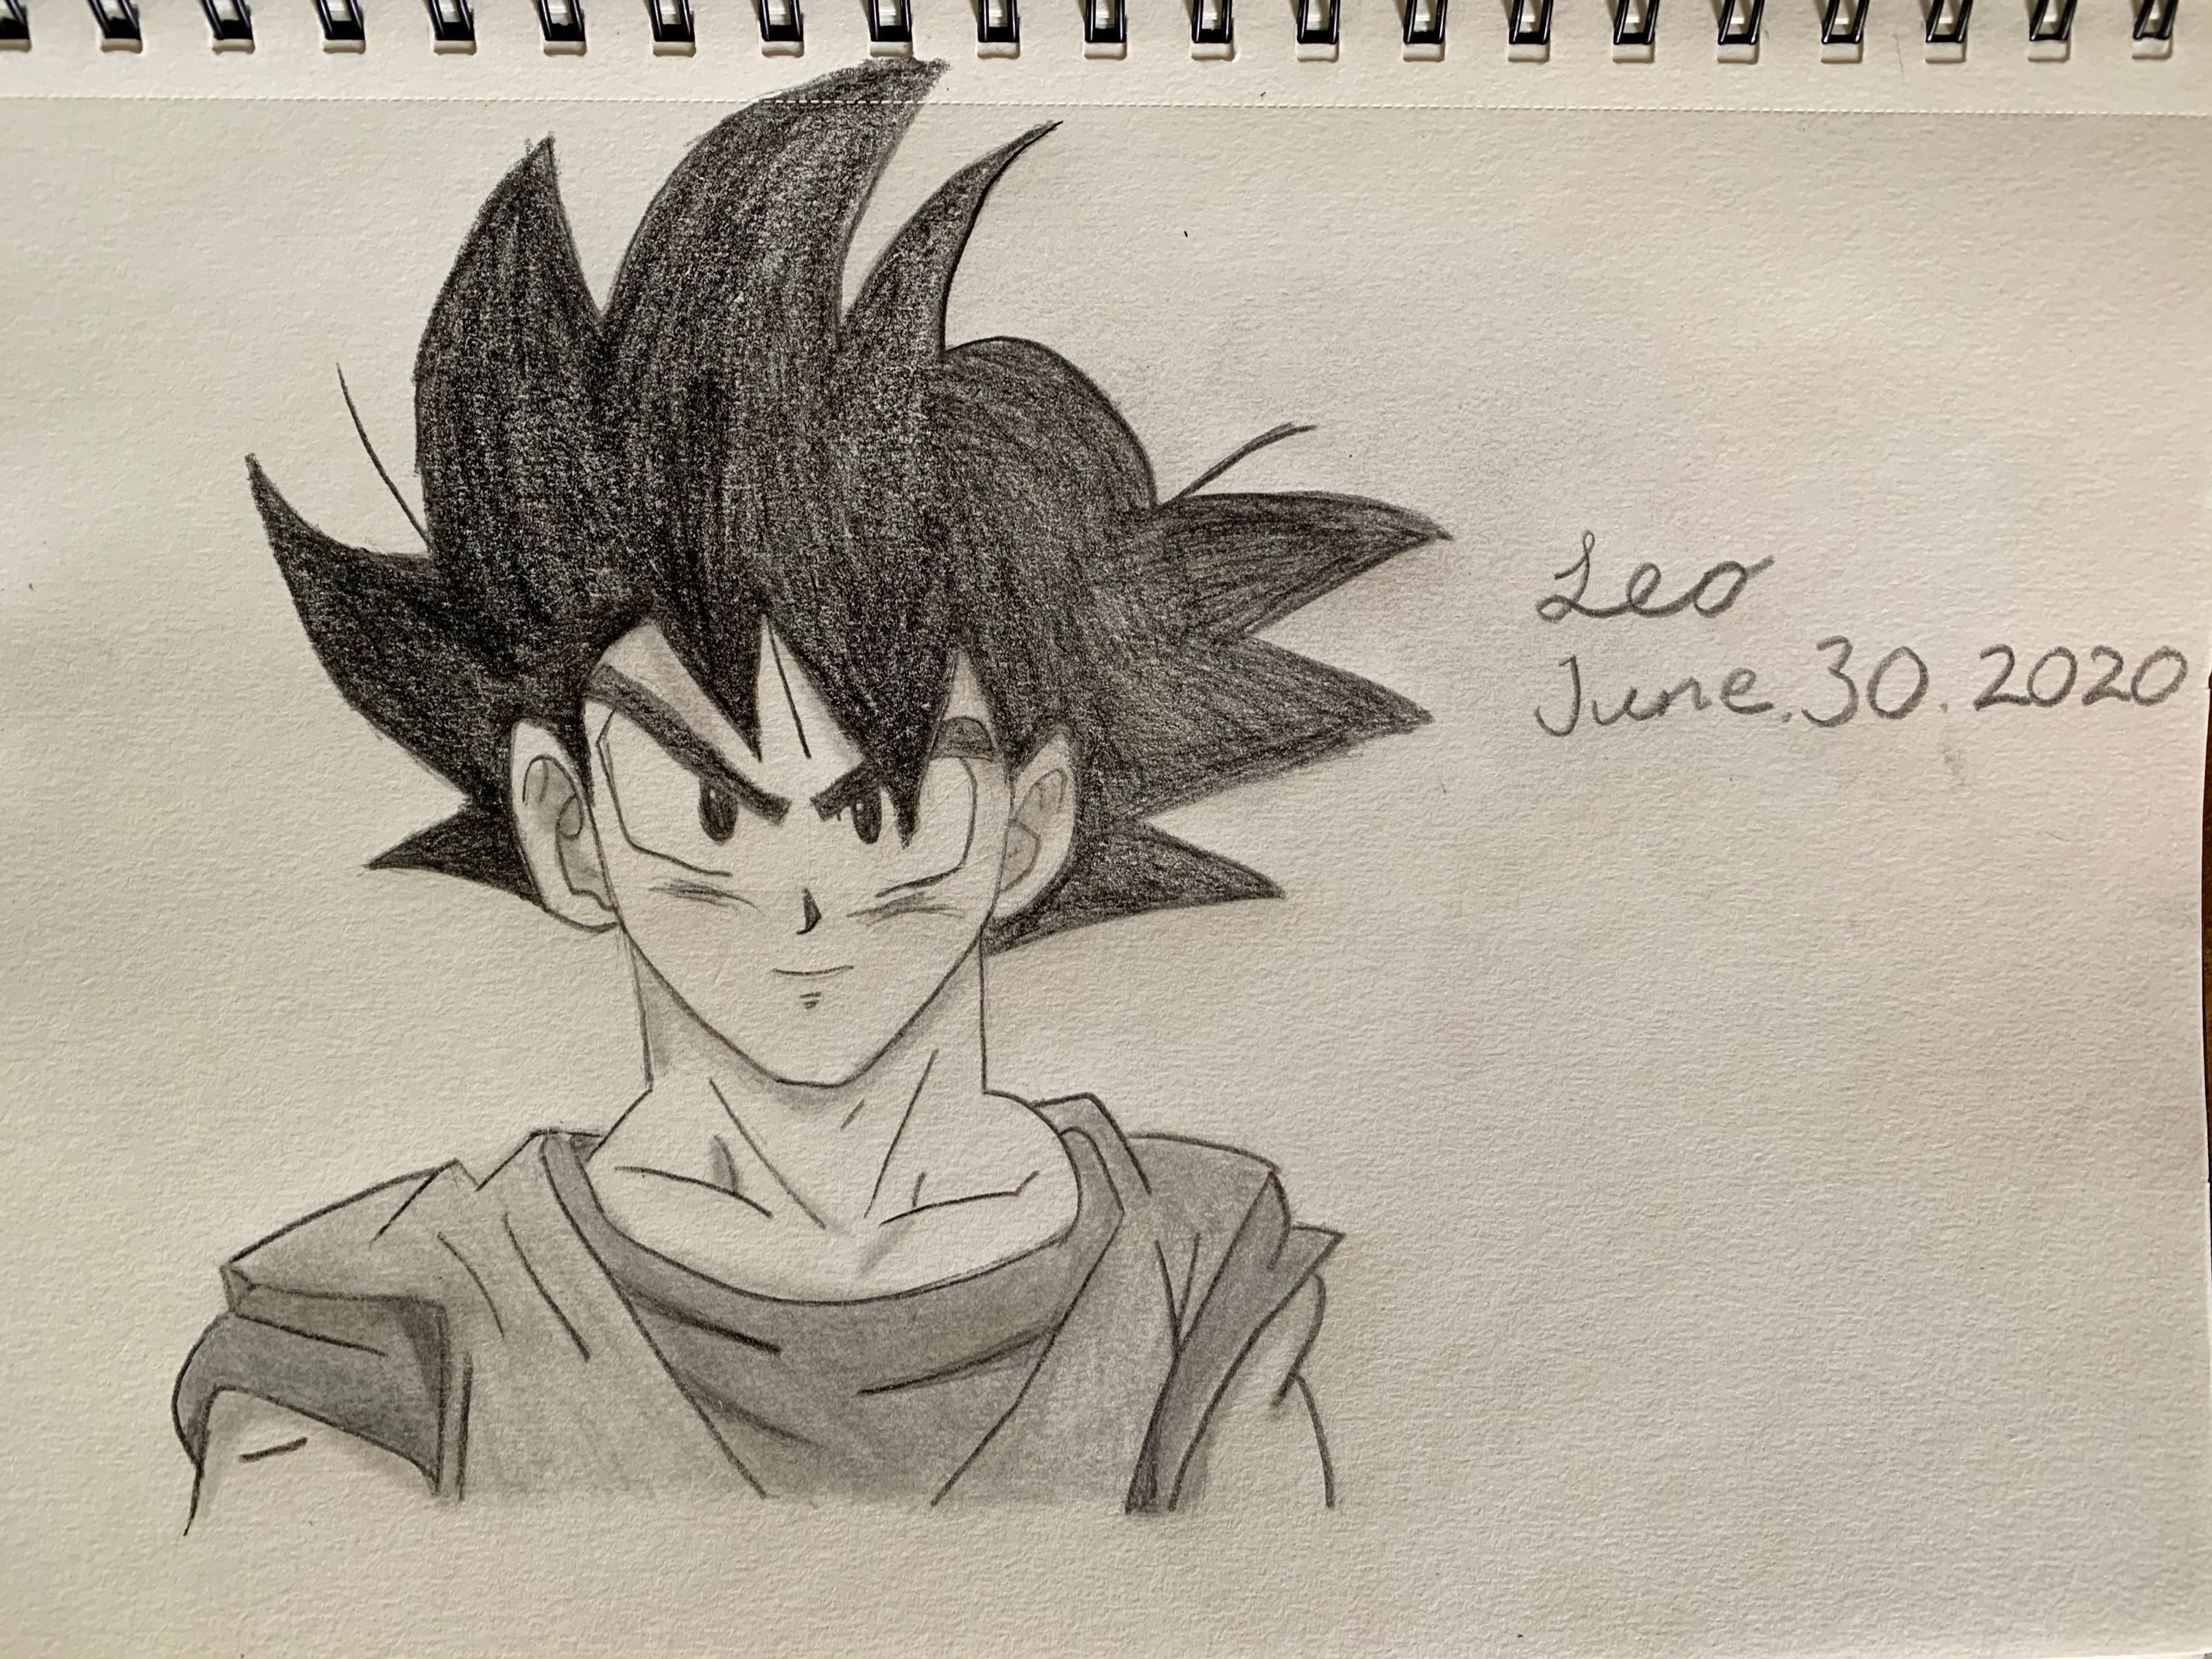 Leo
June.30.2020